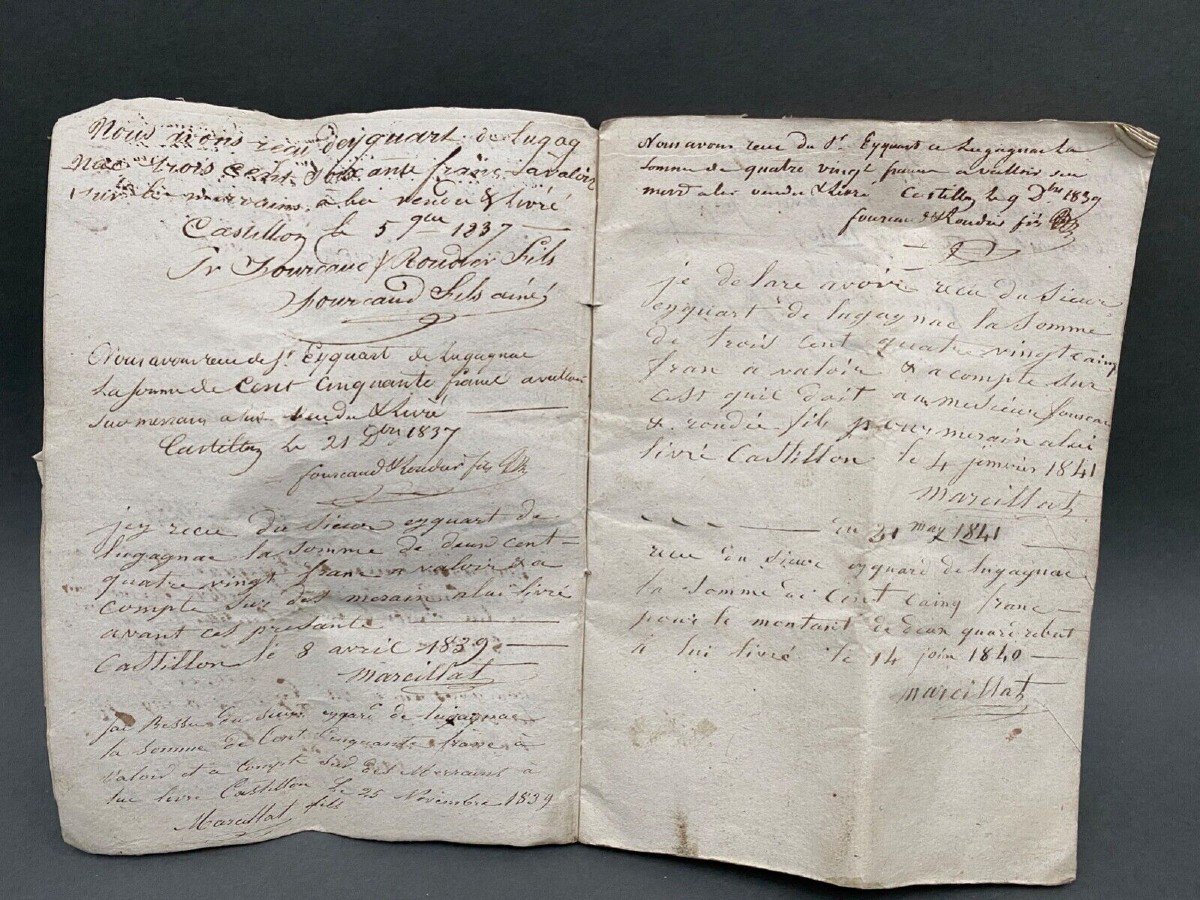 Nous avons reçu deyquart de lugag
nac trois cent soixante frans avaloir
sur les merrains a lui vendu & livré
Castillon le 5 1837
Fourcaud & Roudier fils
fourcaud fils ainé
Nous avons recu de Sr Eyquart de Lugagnac
La somme de Cent Cinquante franc a valloir
sur merrain a lui vendu & livré
Castillon le 21 1837
fourcaud & Roudier fils
jey recu du sieur eyquart de
lugagnac la somme de deux cent
quatre vingt franc a valoir & a
compte sur des merain a lui livré
avant ces presante
Castillon le 8 avril 1839
marcillat
du sieur eyquart de lugagnac
la somme de Cent Cinquante franc à
valoir et a compte sur des Merrains à
lui livré Castillon Le 25 Novembre 1839
Marcillat fils
Nous avons recu du Sr Eyquart de Lugagnac La
somme de quatre vingt franc a valloir sur
merd a lui vendu & Livré Castillon le 9 Dbre 1839
& Roudier fils
je delare avoir recu du sieur
eyquart de lugagnac la somme
de trois cent quatre vingt cainq
fran a valoir & a compte sur
cest quil doit a messieur
& roudié fils pour merain a lui
livré Castillon le 4 janvier 1841
marcillat
en 21 may 1841
recu du sieur eyquard de lugagnac
la somme de Cent Cainq franc
pour le montant de deux quard rebut
a lui livré le 14 join 1840
marcillat